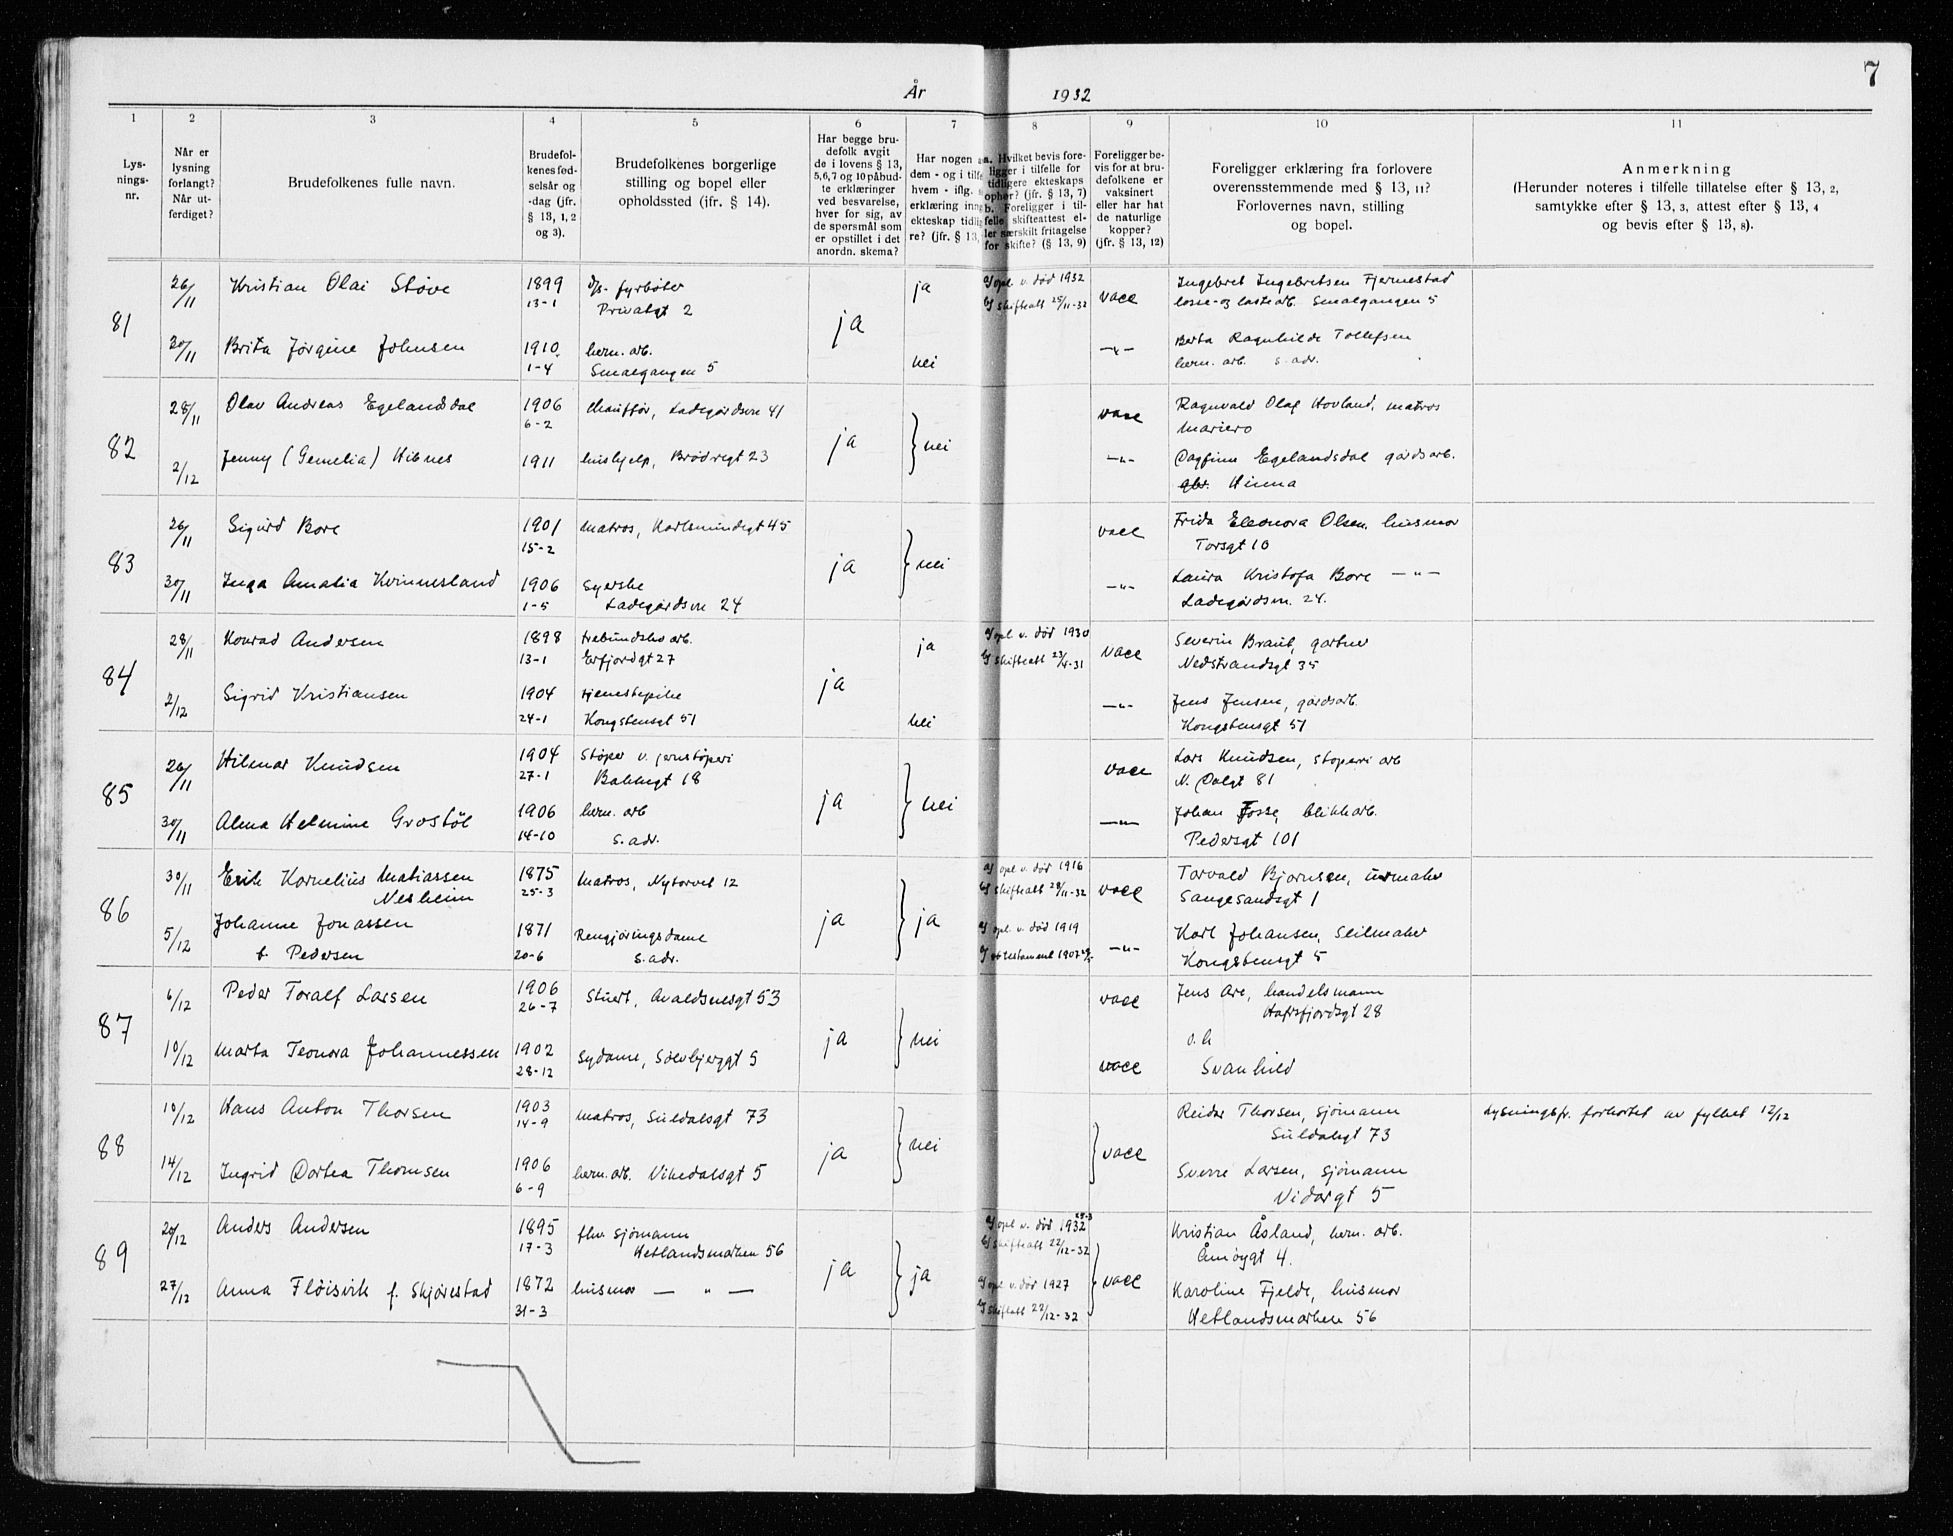 7
År 1932
1 2 3 4 5 6 7 8 9 10 11
Lys-
nings-
nr.
Når er
lysning
forlangt?
Når ut-
ferdiget?
Brudefolkenes fulle navn.
Brudefol-
kenes fød-
selsår og
-dag (jfr.
§ 13, 1, 2
og 3).
Brudefolkenes borgerlige
stilling og bopel eller
opholdssted (jfr. § 14).
Har begge bru-
defolk avgit
de i lovens § 13,
5, 6, 7 og 10 påbud-
te erklæringer
ved besvarelse,
hver for sig, av
de spørsmål som
er opstillet i det
anordn. skema?
Har nogen
dem - og i tilf
hvem - iflg.
erklæring inng
ekteskap tidlig
re? (jfr. § 13,
a. Hvilket bevis fore-
ligger i tilfelle for
tidligere ekteskaps
ophør? (jfr. § 13, 7)
b. Foreligger i til-
felle skifteattest el-
ler særskilt fritagelse
for skifte? (§ 13, 9)
Foreligger be-
vis for at bru-
defolkene er
vaksinert
eller har hat
de naturlige
kopper?
(jfr. § 13, 12)
Foreligger erklæring fra forlovere
overensstemmende med § 13, 11?
Forlovernes navn, stilling
og bopel.
Anmerkning
(Herunder noteres i tilfelle tillatelse efter § 13, 2,
samtykke efter § 13, 3, attest efter § 13, 4
og bevis efter § 13, 8).
81
26/11 Kristian Olai Støve 1899 d/s. fyrbøter ja a/ opl. v. død 1932 vacc Ingebret Ingebretsen Fjermestad
13-1 Privatgt 2 ja b/ skifteatt 25/11-32 losse- og lastearb. Smalgangen 5
30/11 Brita Jørgine Johnsen 1910 herm. arb. —"— Berta Ragnhilde Tollefsen
1-4 Smalgangen 5 nei herm. arb. s. adr.
82
28/11 Olav Andreas Egelandsdal 1906 Chauffør, Ladegårdsvn 41 vacc Ragnvald Olaf Hovland, matros
6-2 ja nei Mariero
2/12 Jenny (Gemelia) Hibnes 1911 hushjelp, Brødregt 23 —"— Dagfinn Egelandsdal gårdsarb.
Hinna
83
26/11 Sigurd Bore 1901 matros, Karlsmindegt 45 vacc Frida Eleonora Olsen, husmor
15-2 ja nei Torsgt 10
30/11 Inga Amalia Kvinnesland 1906 Syerske —"— Laura Kristofa Bore —"—
1-5 Ladegårdsvn 24 Ladegårdsvn. 24.
84
28/11 Konrad Andersen 1898 trebundsko arb. ja a/ opl. v. død 1930 vacc Severin Braut, gartner
13-1 Erfjordgt 27 ja b/ skifteatt 23/4-31 Nedstrandsgt 35
2/12 Sigrid Kristiansen 1904 tjenestepike —"— Jens Jensen, gårdsarb.
24-1 Kongstensgt 51 nei Kongstensgt 51
85
26/11 Hilmar Knudsen 1904 Støper v. jernstøperi vacc Lars Knudsen, støperi arb
27-1 Bakkegt 18 ja nei N. Dalgt 81
30/11 Alma Helmine Grostøl 1906 herm. arb —"— Johan Fosse, blikkarb.
14-10 s. adr. Pedersgt 101
86
30/11 Erik Kornelius Matiassen 1875 Matros, Nytorvet 12 a/ opl. v. død 1916 vacc Torvald Bjørnsen, urmaker
Nesheim 25-3 ja ja b/ skifteatt 28/11-32 Sangesandsgt 1
5/12 Johanne Jonassen 1871 Rengjøringsdame a/ opl. v. død 1919 —"— Karl Johansen, Seilmaker
f. Pedersen 20-6 s. adr. testament 1907 Kongstensgt 5
87
6/12 Peder Toralf Larsen 1906 Stuert, Avaldsnesgt 53 vacc Jens Are, handelsmann
26-7 ja nei Hafrsfjordsgt 28
10/12 Marta Teonora Johannessen 1902 Sydame, Solvbjerggt 5 vacc o. h
28-12 Svanhild
88
10/12 Hans Anton Thorsen 1903 matros, Suldalsgt 73 Reidar Thorsen, sjømann Lysningsfr. forkortet av fylket 12/12
14-9 ja nei vacc Suldalsgt 73
14/12 Ingrid Dortea Thomsen 1906 herm. arb. Vikedalsgt 5 Sverre Larsen, sjømann
6-9 Vidargt 5
89
20/12 Anders Andersen 1895 fhv sjømann a/ opl. v. død 1932 Kristian Åsland, herm. arb.
17-3 Hetlandsmarken 56 ja ja b/ skifteatt 22/12-32 vacc Åmøygt 4.
27/12 Anna Fløisvik f. Skjørestad 1872 husmor — " — a/ opl. v. død 1927 Karoline Fjelde, husmor
31-3 b/ skifteatt 22/12-32 Hetlandsmarken 56